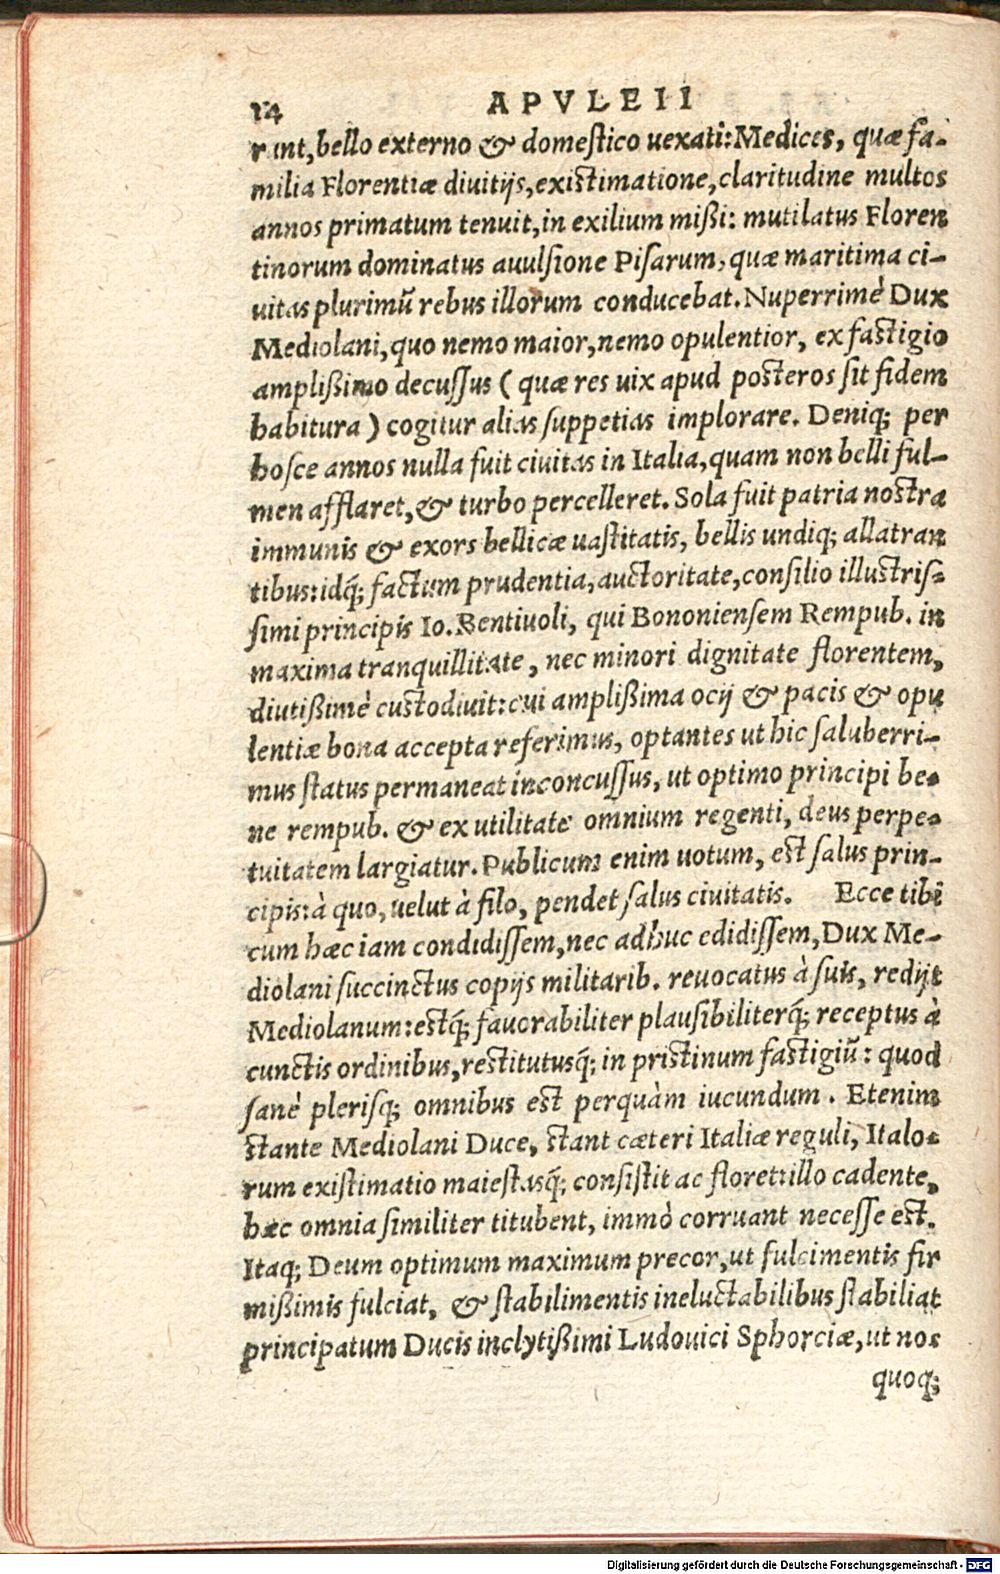 14 APVLEII
runt, bello externo & domestico uexati: Medices, quæ fa-
milia Florentiæ diuitijs, existimatione, claritudine multos
annos primatum tenuit, in exilium mißi: mutilatus Floren
tinorum dominatus auulsione Pisarum, quæ maritima ci-
uitas plurimũ rebus illorum conducebat. Nuperrimè Dux
Mediolani, quo nemo maior, nemo opulentior, ex fastigio
amplißimo decussus ( quæ res uix apud posteros sit fidem
habitura ) cogitur alias suppetias implorare. Deniq; per
hosce annos nulla fuit ciuitas in Italia, quam non belli ful-
men afflaret, & turbo percelleret. Sola fuit patria nostra
immunis & exors bellicæ uastitatis, bellis undiq; allatran
tibus: idq́; factum prudentia, auctoritate, consilio illustris-
simi principis Io. Bentiuoli, qui Bononiensem Rempub. in
maxima tranquillitate, nec minori dignitate florentem,
diutißimè custodiuit: cui amplißima ocij & pacis & opu
lentiæ bona accepta referimus, optantes ut hic saluberri-
mus status permaneat inconcussus, ut optimo principi be-
ne rempub. & ex utilitate omnium regenti, deus perpe-
tuitatem largiatur. Publicum enim uotum, est salus prin-
cipis: à quo, uelut à filo, pendet salus ciuitatis. Ecce tibi
cum hæc iam condidissem, nec adhuc edidissem, Dux Me-
diolani succinctus copijs militarib. reuocatus à suis, redijt
Mediolanum: estq́; fauorabiliter plausibiliterq́; receptus à
cunctis ordinibus, restitutusq́; in pristinum fastigiũ: quod
sanè plerisq; omnibus est perquàm iucundum. Etenim
stante Mediolani Duce, stant cæteri Italiæ reguli, Italo-
rum existimatio maiestasq́; consistit ac floret: illo cadente,
hæc omnia similiter titubent, immò corruant necesse est.
Itaq; Deum optimum maximum precor, ut fulcimentis fir
mißimis fulciat, & stabilimentis ineluctabilibus stabiliat
principatum Ducis inclytißimi Ludouici Sphorciæ, ut nos
quoq;
Digitalisierung gefördert durch die Deutsche Forschungsgemeinschaft - DFG